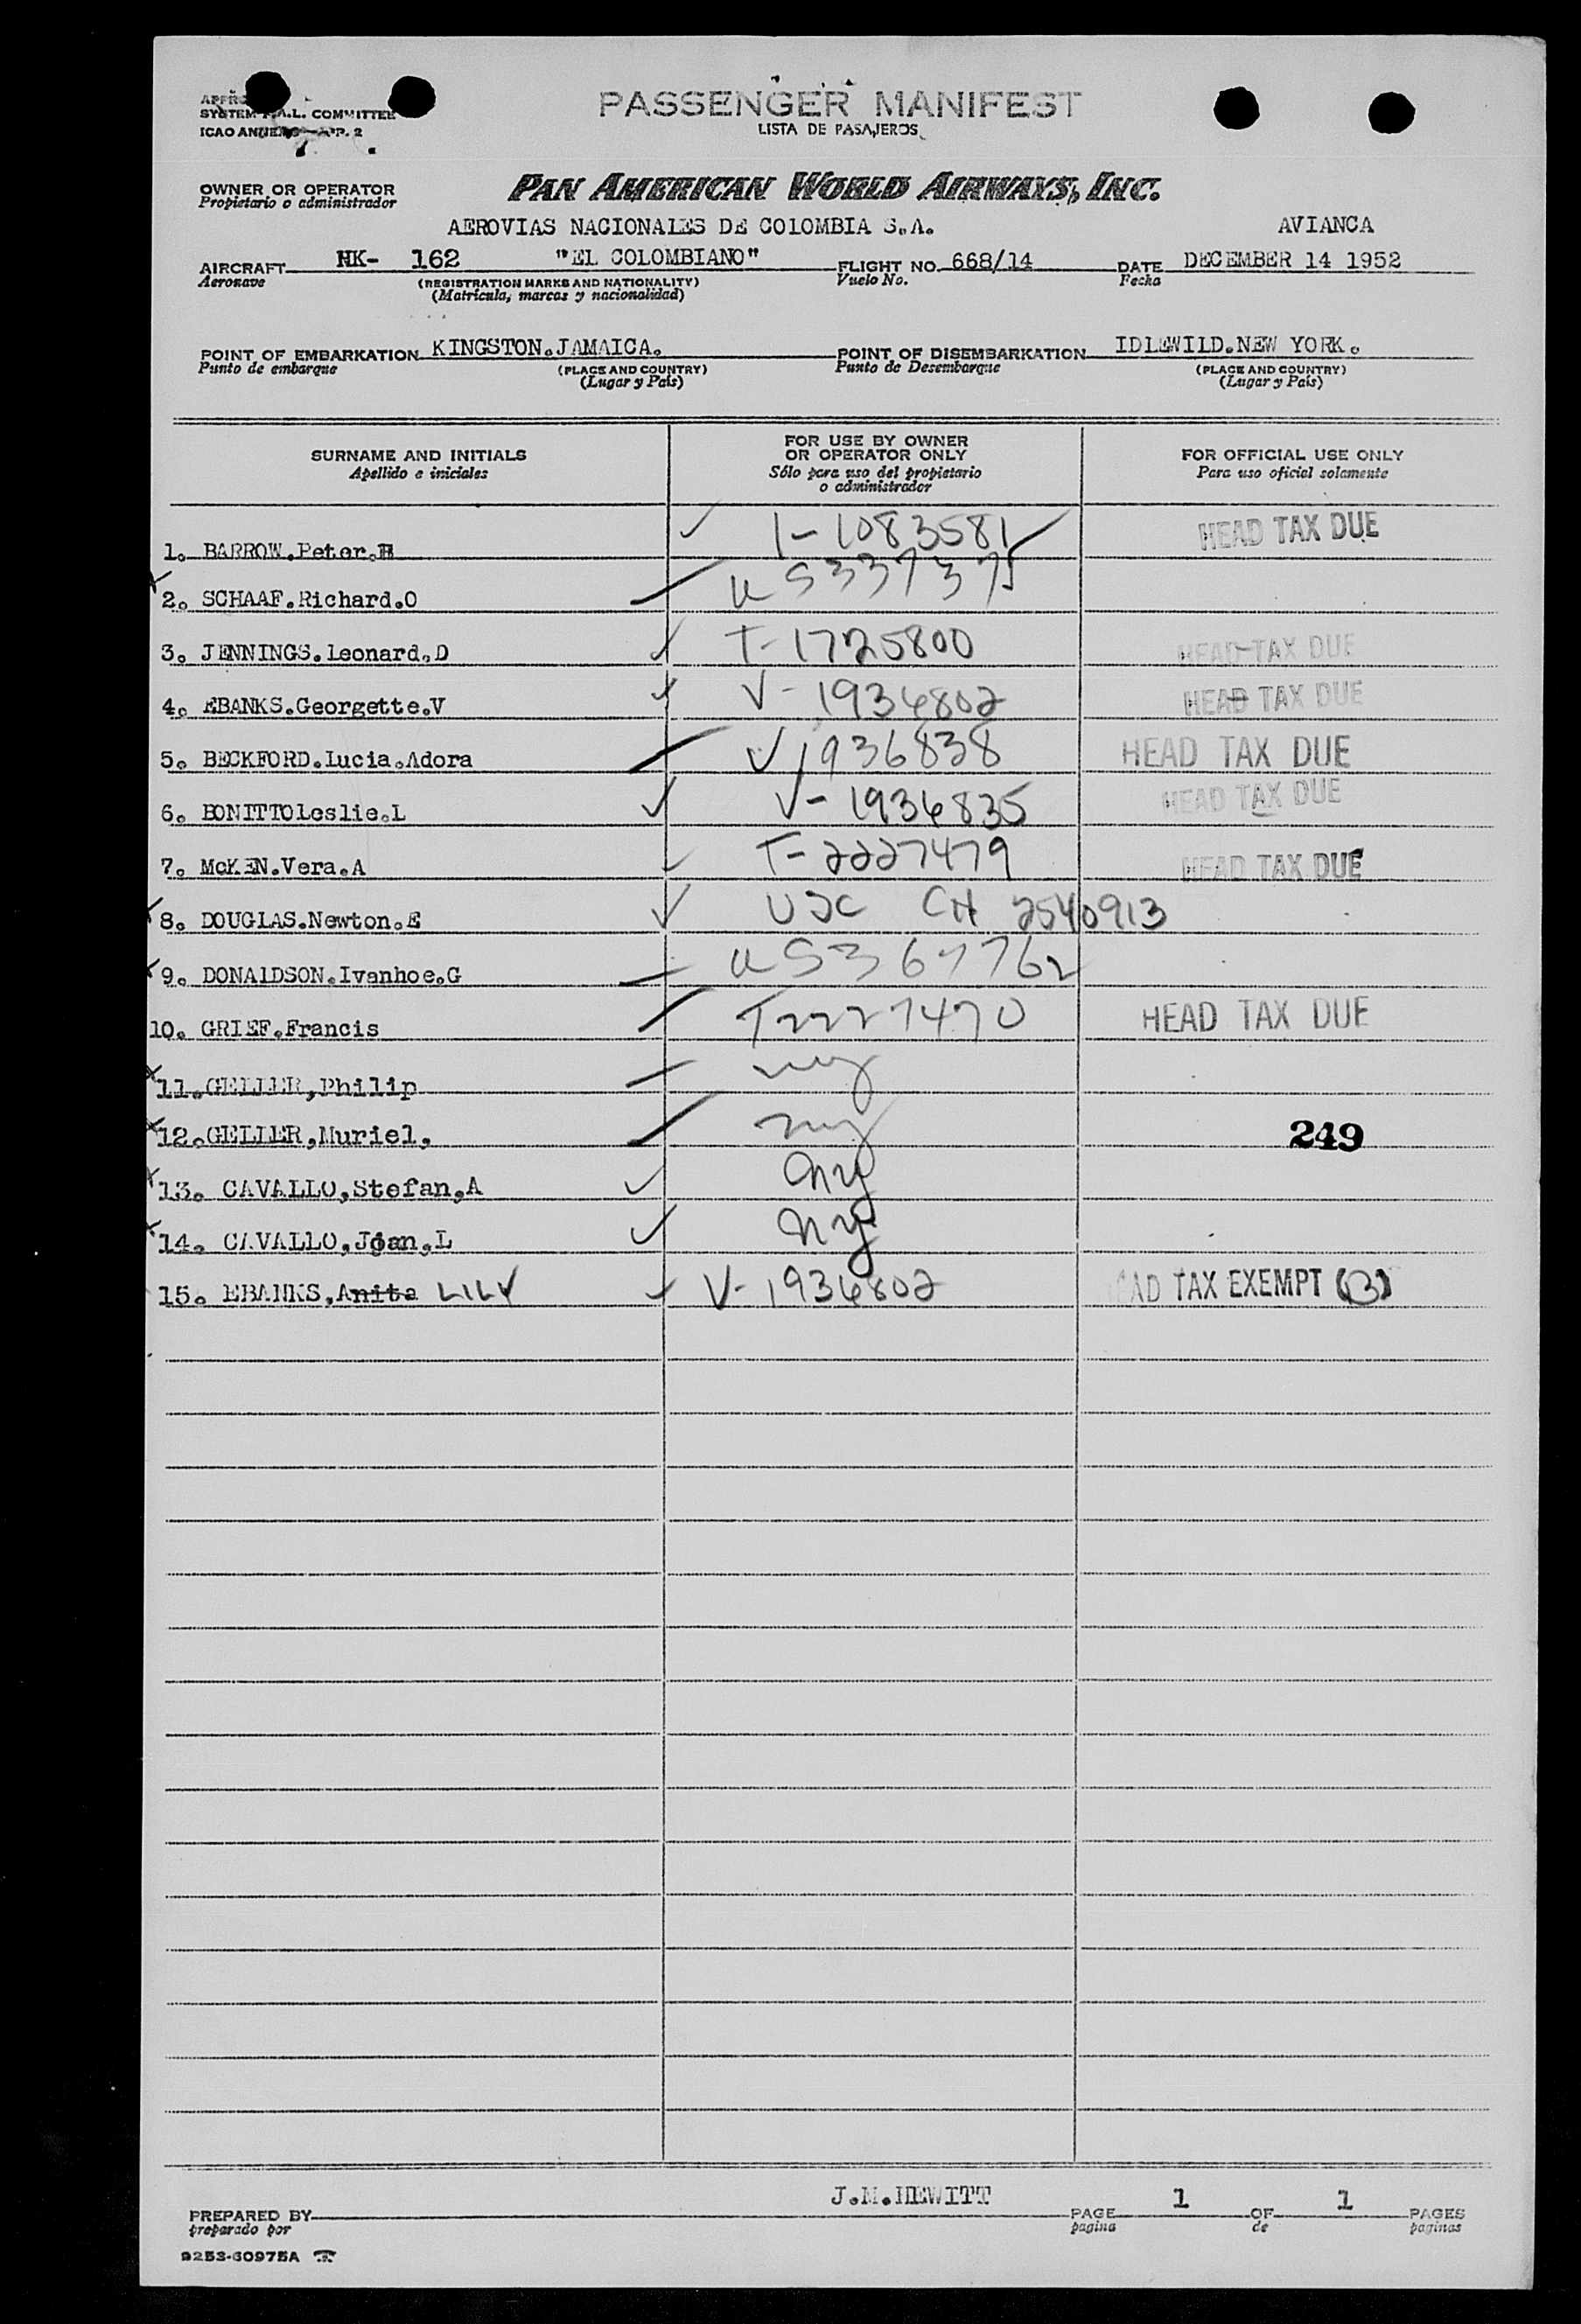 SYSTEM F.A.L. COMMITTEE
PASSENGER MANIFEST
LISTA DE PASAJEROS
OWNER OR OPERATOR
Propietario o administrador
PAN AMERICAN WORLD AIRWAYS, INC.
AEROVIAS NACIONALES DE COLOMBIA S.A. AVIANCA
AIRCRAFT HK- 162 "EL COLOMBIANO" FLIGHT NO. 668/14 DATE DECEMBER 14 1952
Aeronave (REGISTRATION MARKS AND NATIONALITY) Vuelo No. Fecha
(Matrícula, marcas y nacionalidad)
POINT OF EMBARKATION KINGSTON.JAMAICA. POINT OF DISEMBARKATION IDLEWILD.NEW YORK.
Punto de embarque (PLACE AND COUNTRY) Punto de Desembarque (PLACE AND COUNTRY)
(Lugar y País) (Lugar y País)
SURNAME AND INITIALS FOR USE BY OWNER OR OPERATOR ONLY FOR OFFICIAL USE ONLY
Apellido e iniciales Sólo para uso del propietario o administrador Para uso oficial solamente
1. BARROW.Peter.H 1-1083581 HEAD TAX DUE
2. SCHAAF.Richard.O
3. JENNINGS.Leonard.D T-1725800 HEAD TAX DUE
4. EBANKS.Georgette.V V-1936802 HEAD TAX DUE
5. BECKFORD.Lucia.Adora V1936828 HEAD TAX DUE
6. BONITTOLeslie.L V-1936835 HEAD TAX DUE
7. McKEN.Vera.A T-2227479 HEAD TAX DUE
8. DOUGLAS.Newton.E USC CH 2540913
9. DONALDSON.Ivanhoe.G
10. GRIEF.Francis T2227470 HEAD TAX DUE
11.GELLER,Philip ny
12.GELLER,Muriel, ny 249
13. CAVALLO,Stefan,A ny
14. CAVALLO,Joan,L ny
15. EBANKS,Anita LILY V-1936802 HEAD TAX EXEMPT (B)
J.M.HEWITT
PREPARED BY PAGE 1 OF 1 PAGES
preparado por pagina de paginas
9253-60975A